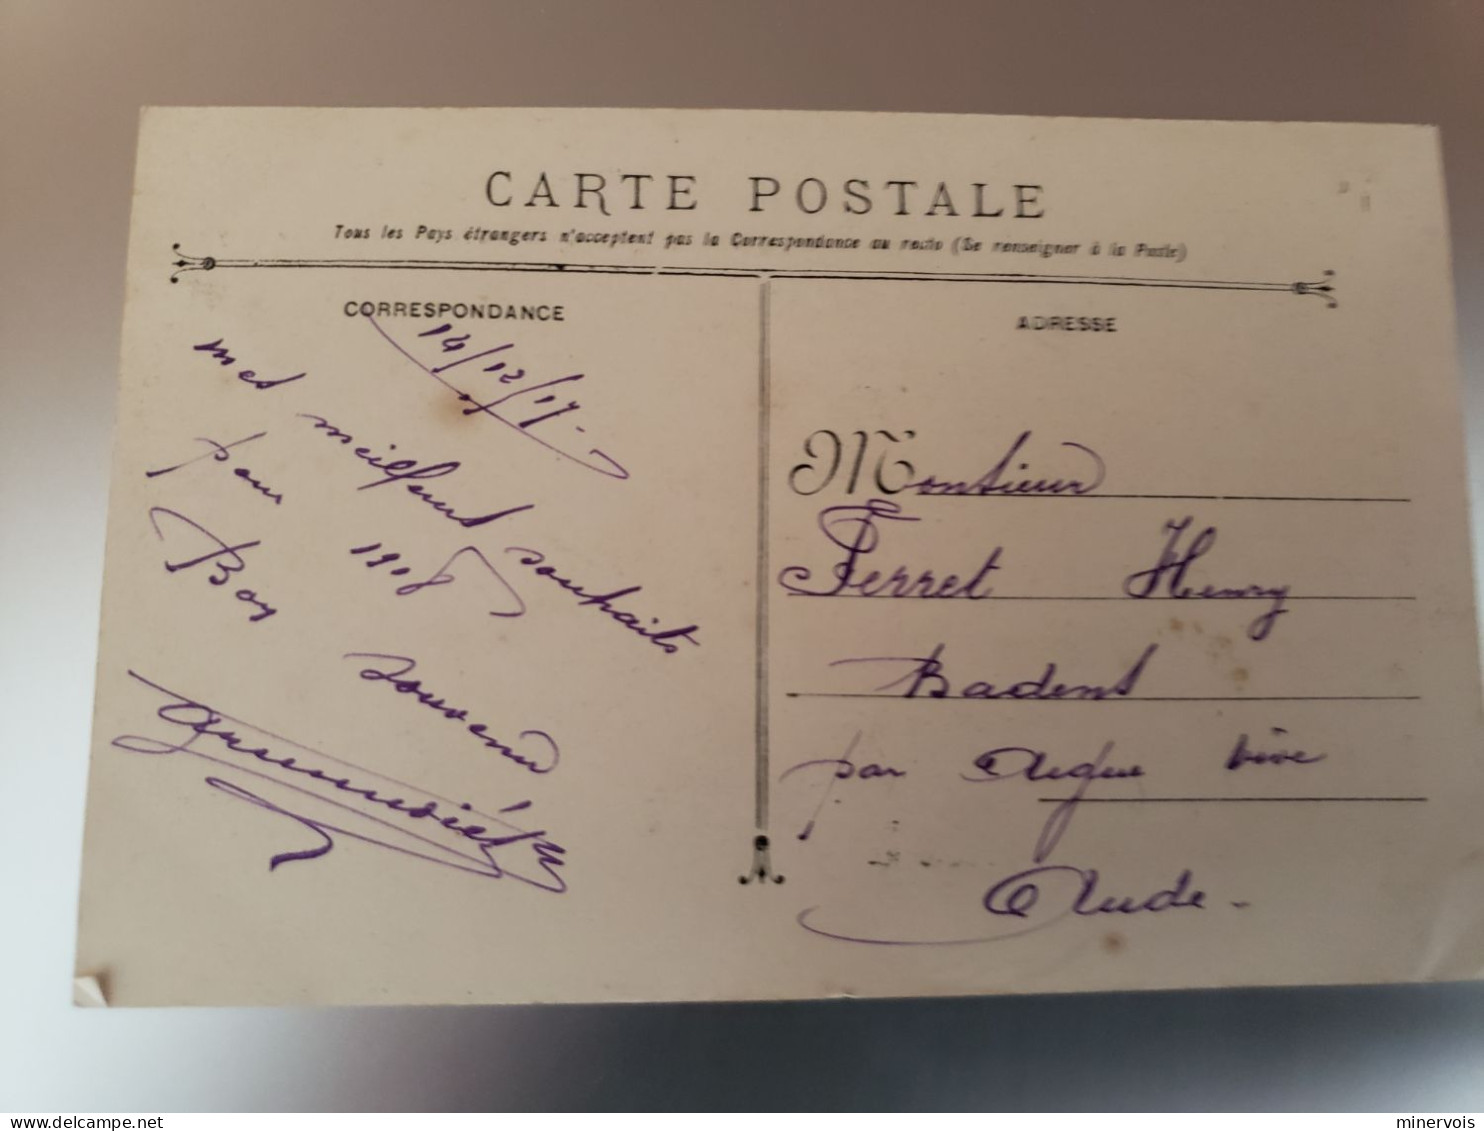 CARTE POSTALE
Tous les Pays étrangers n'acceptent pas la Correspondance au recto (Se renseigner à la Poste)
CORRESPONDANCE
14/12/17
mes meilleurs souhaits
pour 1918
Bon souvenir
ADRESSE
Monsieur
Ferret Henry
Badens
par Aigue vive
Aude.
delcampe.net
minervois